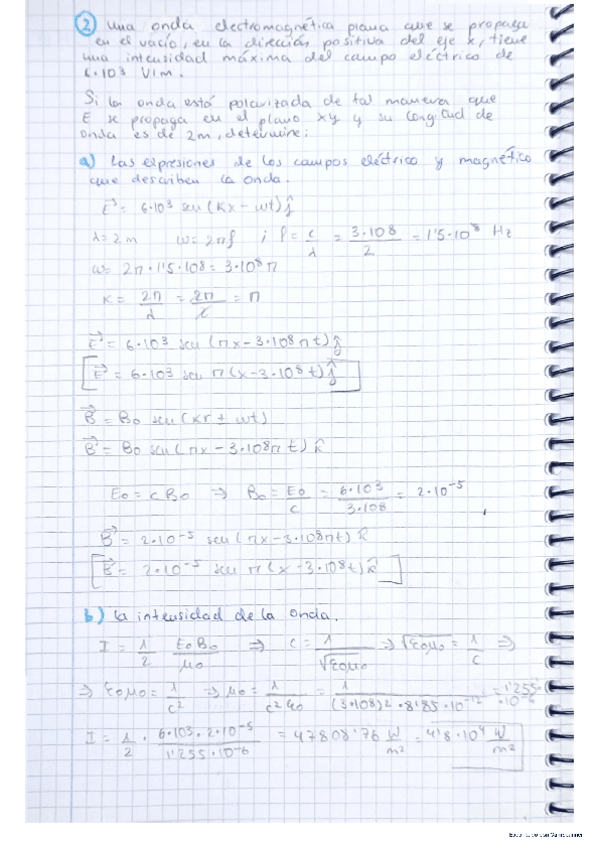 2 Una onda electromagnética plana que se propaga
en el vacío, en la dirección positiva del eje x, tiene
una intensidad máxima del campo eléctrico de
6·10³ V/m.
Si la onda está polarizada de tal manera que
E se propaga en el plano xy y su longitud de
onda es de 2m, determine:
a) Las expresiones de los campos eléctrico y magnético
que describen la onda.
E⃗ = 6·10³ sen (Kx - ωt) ĵ
λ = 2 m ω = 2πf ; f = c/λ = 3·10⁸/2 = 1'5·10⁸ Hz
ω = 2π·1'5·10⁸ = 3·10⁸ π
K = 2π/λ = 2π/2 = π
E⃗ = 6·10³ sen (πx - 3·10⁸πt) ĵ
[E⃗ = 6·10³ sen π(x - 3·10⁸t) ĵ]
B⃗ = B₀ sen (Kr ± ωt)
B⃗ = B₀ sen (πx - 3·10⁸πt) k̂
E₀ = cB₀ ⇒ B₀ = E₀/c = 6·10³/3·10⁸ = 2·10⁻⁵
B⃗ = 2·10⁻⁵ sen (πx - 3·10⁸πt) k̂
[B⃗ = 2·10⁻⁵ sen π(x - 3·10⁸t) k̂]
b) La intensidad de la onda.
I = 1/2 E₀B₀/μ₀ ⇒ c = 1/√ε₀μ₀ ⇒ √ε₀μ₀ = 1/c ⇒
⇒ ε₀μ₀ = 1/c² ⇒ μ₀ = 1/c²ε₀ = 1/(3·10⁸)²·8'85·10⁻¹² = 1'255·10⁻⁶
I = 1/2 · 6·10³·2·10⁻⁵/1'255·10⁻⁶ = 47808'76 W/m² = 4'8·10⁴ W/m²